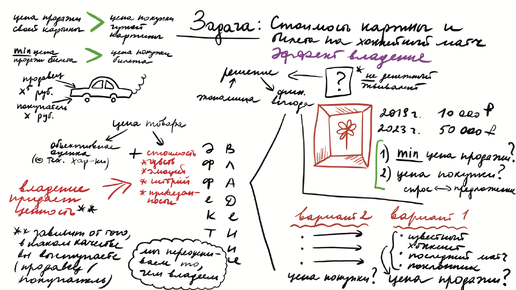 Задача: Стоимость картины и
билета на хоккейный матч
Эффект владения
цена продажи
своей картины
>
цена покупки
чужой
картины
min цена
продажи билета
>
цена покупки
билета
продавец
x° руб.
покупатель
x руб.
решение
экономика
?
* не решенный
2018 г. 10 000 ₽
2023 г. 50 000 ₽
1) min цена продажи?
2) цена покупки?
спрос ↔ предложение
цена товара
объективная
оценка
(⊕ тех. хар-ки)
+
стоимость
* чувств
* эмоций
* историй
владение
придает
ценность **
** зависит от того,
в каком качестве
вы выступаете
(продавец /
покупатель)
эффект
владения
мы переоцени-
ваем то,
чем владеем
вариант 2
цена покупки?
вариант 1
известный
хоккеист
последний матч
поклонник
цена продажи?